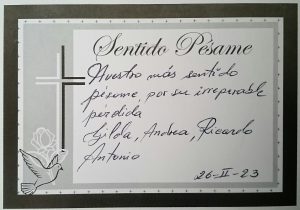 Sentido Pésame
Nuestro más sentido
pésame, por su irreparable
pérdida
Gilda, Andrea, Ricardo
Antonio
26-II-23